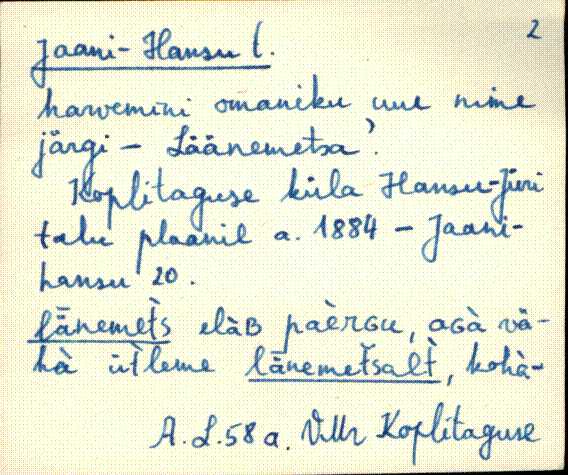 2
Jaani-Hansu t.
harvemini omaniku uue nime
järgi – Läänemetsa'.
Koplitaguse küla Hansu-Jüri
talu plaanil a. 1884 – Jaani-
hansu 20.
lǟnemet̀s elàʙ paèrɢu, aɢà vä-
hà üt̀leme lǟnemet̀salt̀, kohà-
A. L. 58 a. VMr Koplitaguse